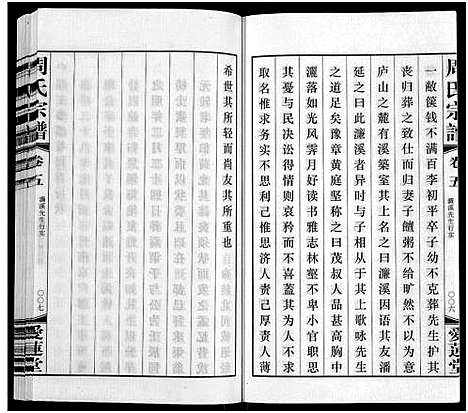 周氏宗譜 卷五 濂溪先生行实 〇〇六 愛蓮堂
一敝箧钱不满百李初平卒子幼不克葬先生护其
丧归葬之致仕归妻子饘粥不给亦旷然不以为意
庐山之麓有溪筑室其上名之曰濂溪因语其友潘
延之曰此濂溪者异时与子相从于其上歌咏先王
之道足矣豫章黄庭坚称之曰茂叔人品甚高胸中
洒落如光风霁月好读书雅志林壑不卑小官职思
其忧与民决讼得情不喜哀矜而不喜其为人不求
取名而惟求务实不徼福而惟求思济人责己厚责人薄
希世其所轻而尚友其所重也
周氏宗譜 卷五 濂溪先生行实 〇〇七 愛蓮堂